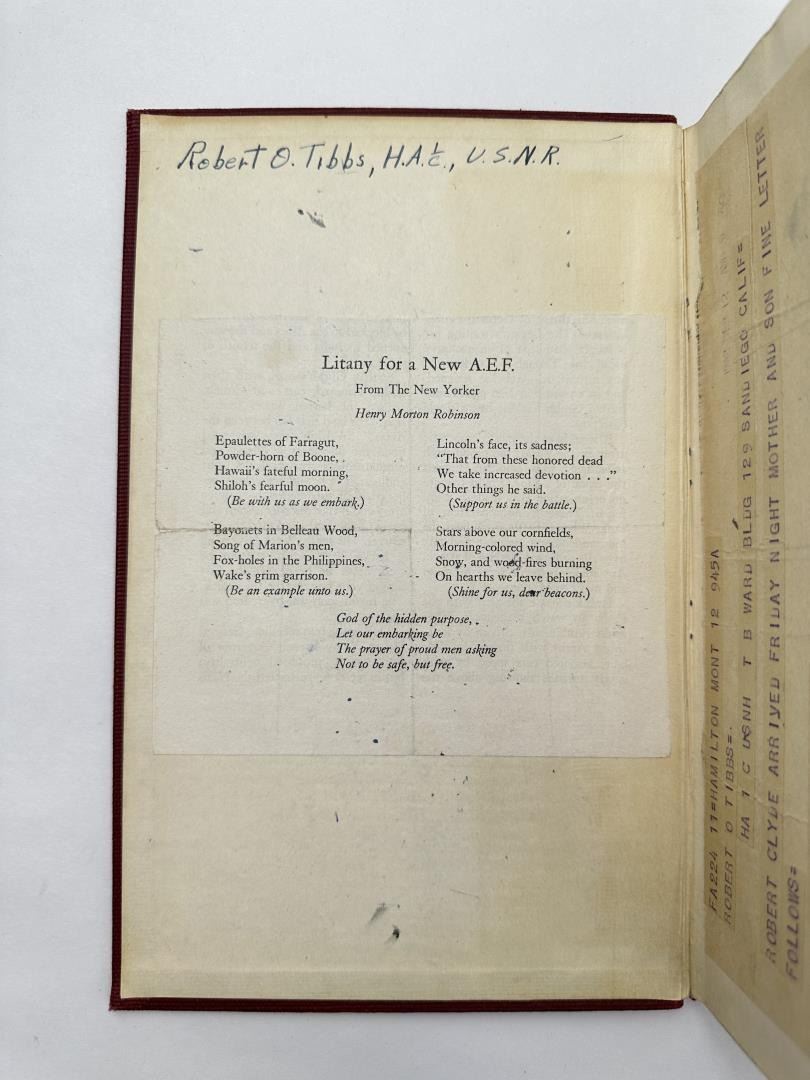 Robert O. Tibbs, H.A. 1/c., U.S.N.R.
Litany for a New A.E.F.
From The New Yorker
Henry Morton Robinson
Epaulettes of Farragut,
Powder-horn of Boone,
Hawaii's fateful morning,
Shiloh's fearful moon.
(Be with us as we embark.)
Bayonets in Belleau Wood,
Song of Marion's men,
Fox-holes in the Philippines,
Wake's grim garrison.
(Be an example unto us.)
Lincoln's face, its sadness;
"That from these honored dead
We take increased devotion . . ."
Other things he said.
(Support us in the battle.)
Stars above our cornfields,
Morning-colored wind,
Snow, and wood-fires burning
On hearths we leave behind.
(Shine for us, dear beacons.)
God of the hidden purpose,
Let our embarking be
The prayer of proud men asking
Not to be safe, but free.
FA224 11=HAMILTON MONT 12 945A
ROBERT O TIBBS=
HA 1 C USNH T B WARD BLDG 129 SANDIEGO CALIF=
ROBERT CLYDE ARRIVED FRIDAY NIGHT MOTHER AND SON FINE LETTER
FOLLOWS=